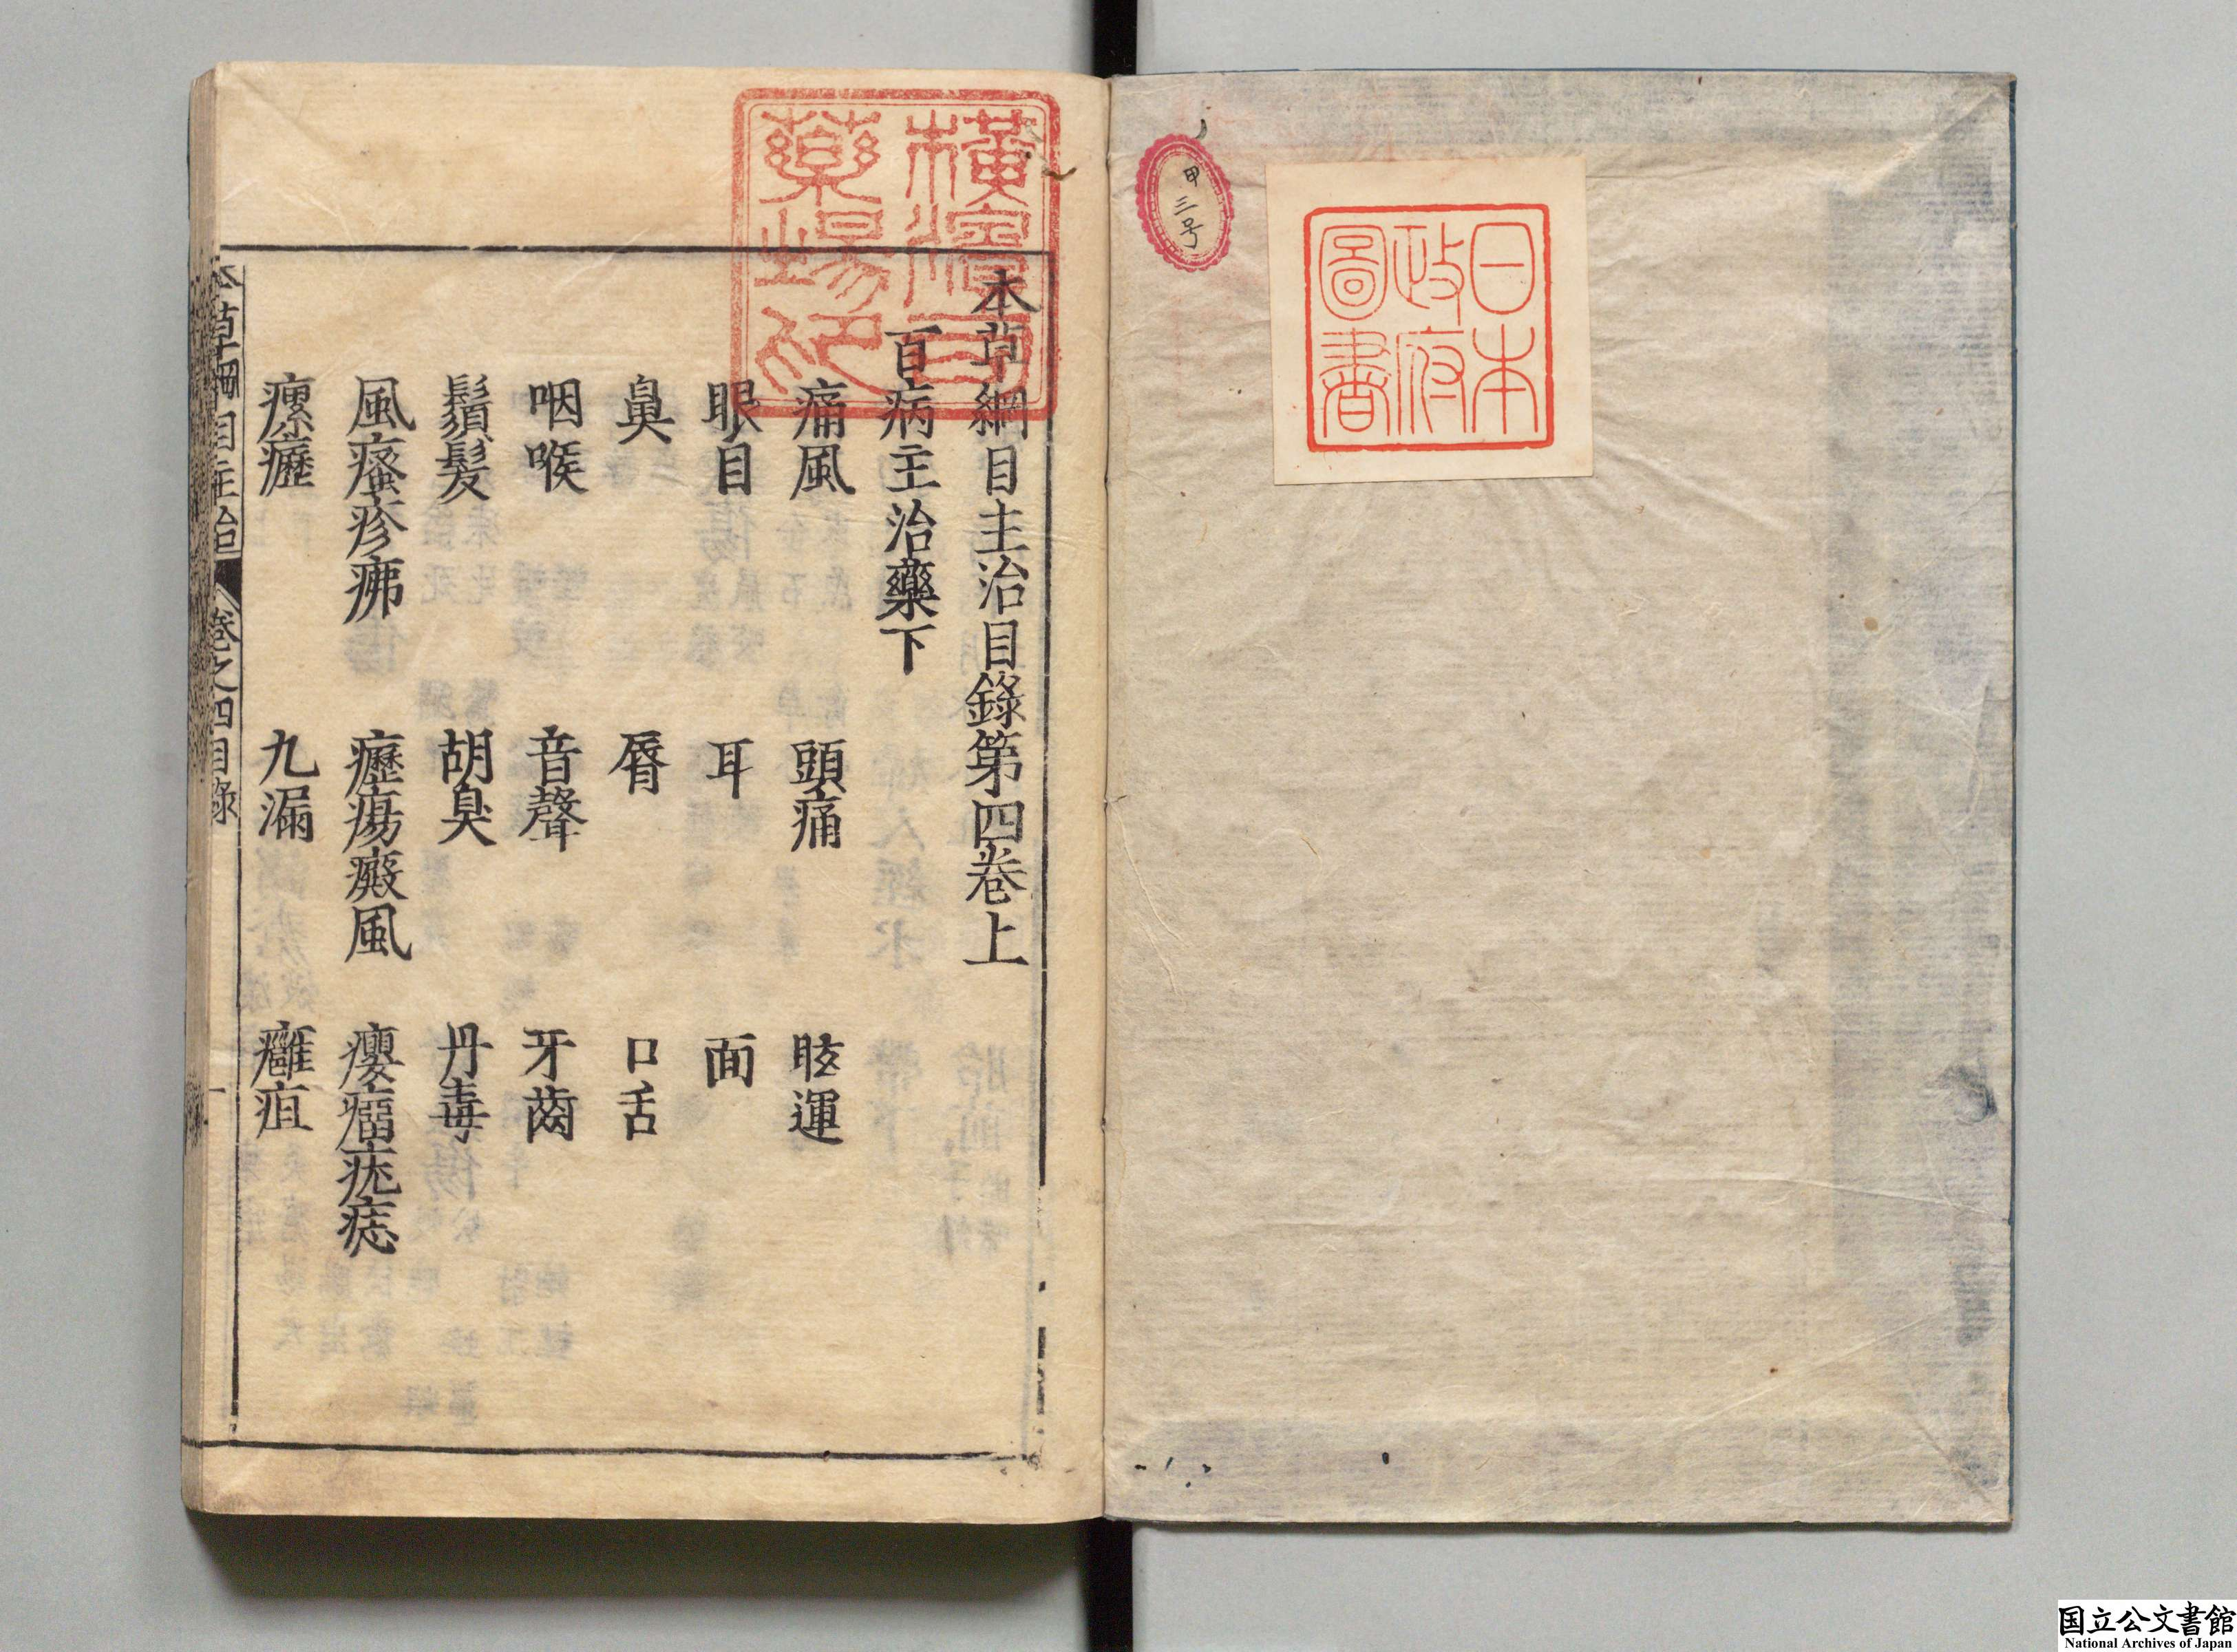 日本
政府
圖書
甲三号
本草綱目主治目錄第四卷上
百病主治藥下
痛風 頭痛 眩運
眼目 耳 面
鼻 脣 口舌
咽喉 音聲 牙齒
鬚髮 胡臭 丹毒
風瘙疹疿 癧瘍癜風 癭瘤疣痣
瘰癧 九漏 癰疽
本草綱目主治 卷之四目錄 一
国立公文書館
National Archives of Japan